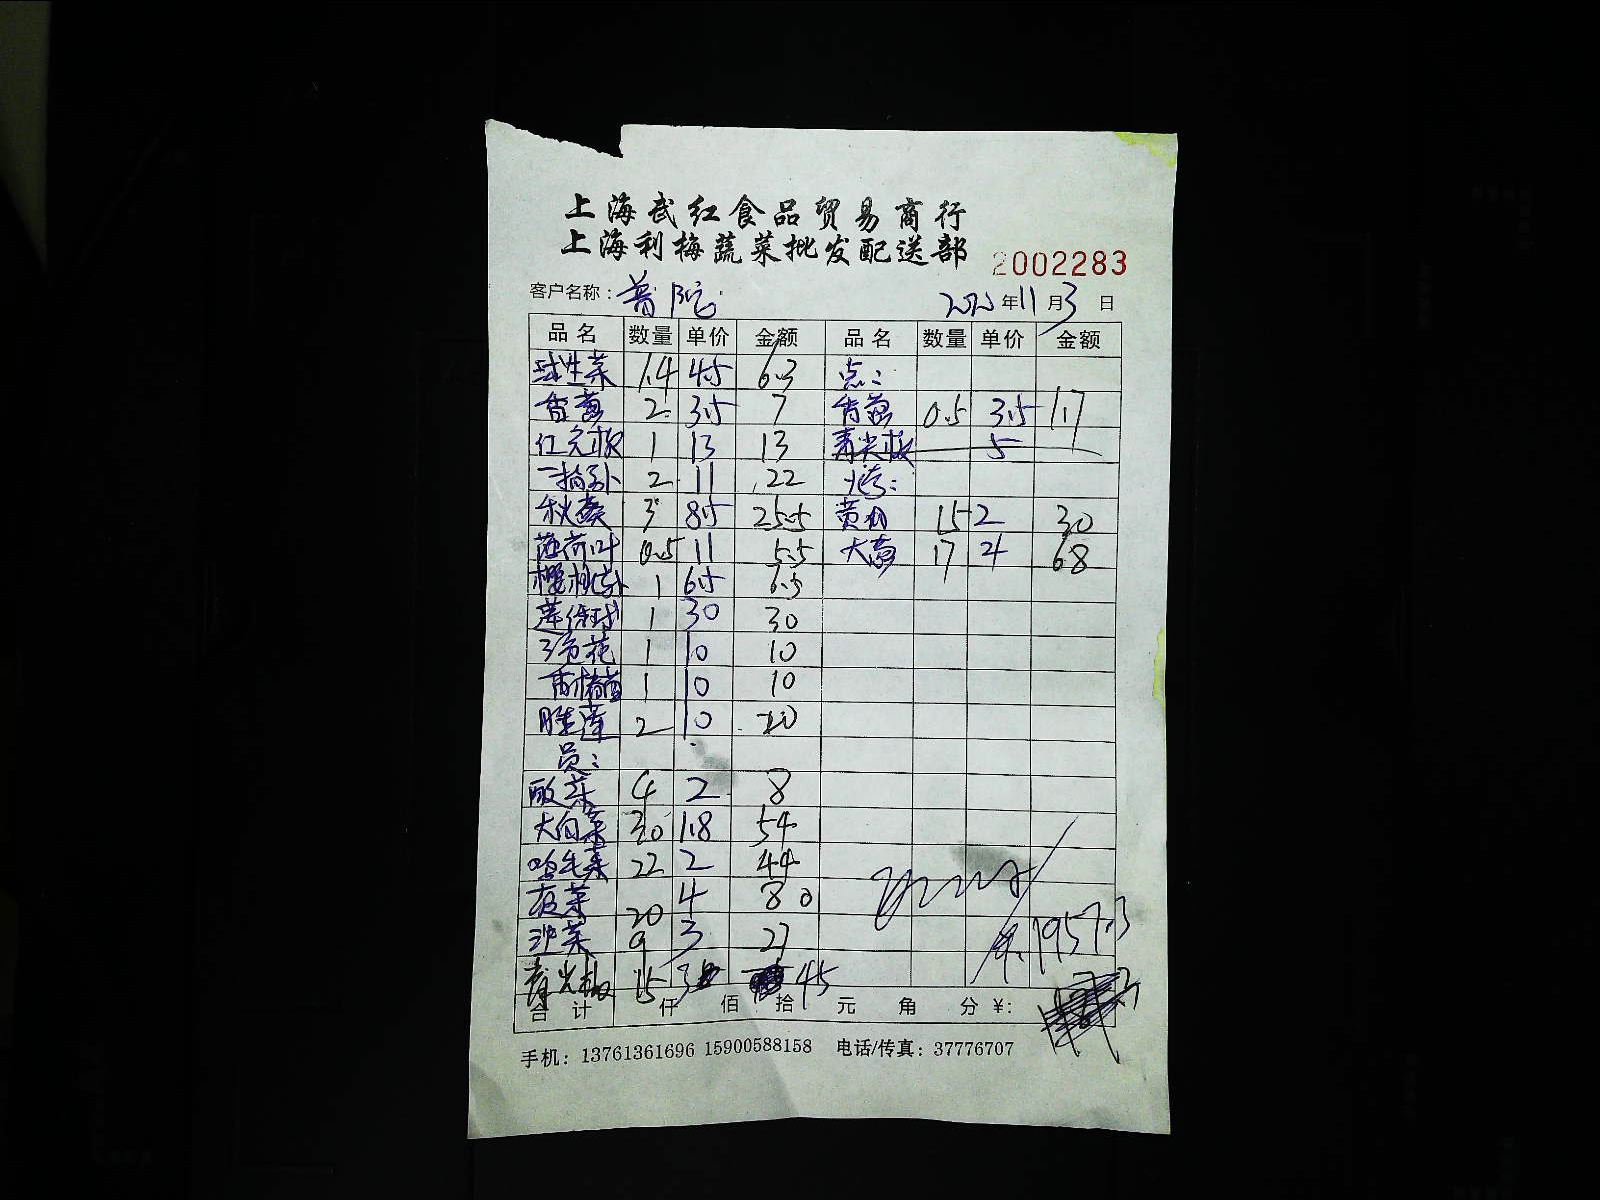 上海武红食品贸易商行
上海利梅蔬菜批发配送部
2002283
客户名称：普陀 2020年11月3日
品名 数量 单价 金额 品名 数量 单价 金额
球生菜 1.4 4.5 6.3 点：
香葱 2 3.5 7 香葱 0.5 3.5 1.7
红尖椒 1 13 13 青尖椒 5
2 11 22
秋葵 3 8.5 25.5 黄瓜 15 2 30
薄荷叶 0.5 11 5.5 大葱 17 4 68
樱桃萝卜 1 6.5 6.5
1 30 30
三色花 1 10 10
1 10 10
2 10 20
员：
酸菜 4 2 8
大白菜 30 1.8 54
22 2 44
菠菜 20 4 80
9 3 27
青尖椒 15 3 45
1957.3
合计 仟 佰 拾 元 角 分 ¥:
手机：13761361696 15900588158 电话/传真：37776707